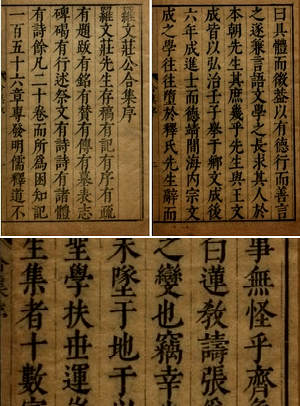 羅文莊公合集序
羅文莊先生存稿有記有序有疏
有題跋有銘有賛有傳有墓表志
碑碣有行述祭文有詩詩有諸體
有詩餘凡二十卷而所爲困知記
一百五十六章專發明儒釋道不
曰具體而微益以有德行而善言
之遂兼言語文學之長求其人於
本朝先生其庶幾乎先生與王文
成皆以弘治壬子舉于鄉文成後
六年成進士而德端聞海內宗文
成之學往往墮於釋氏先生辭而
事無怪乎齊
曰蓮教譸張
之變也竊幸
未墜于地于
聖學扶丗運
生集者十數